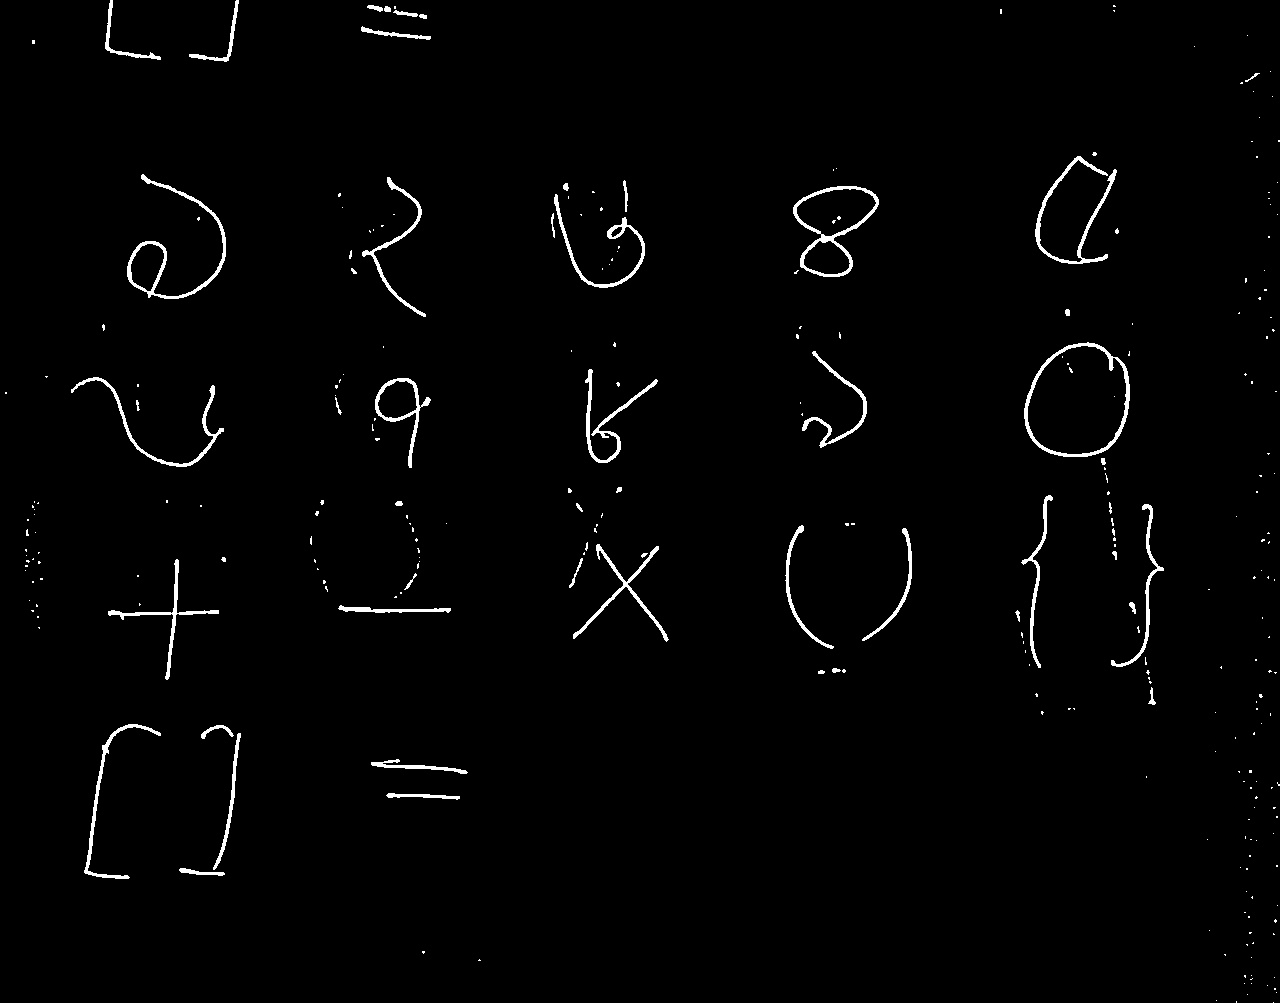 [ ] =
১ ২ ৩ ৪ ৫
৬ ৭ ৮ ৯ ০
+ - × ( ) { }
[ ] =